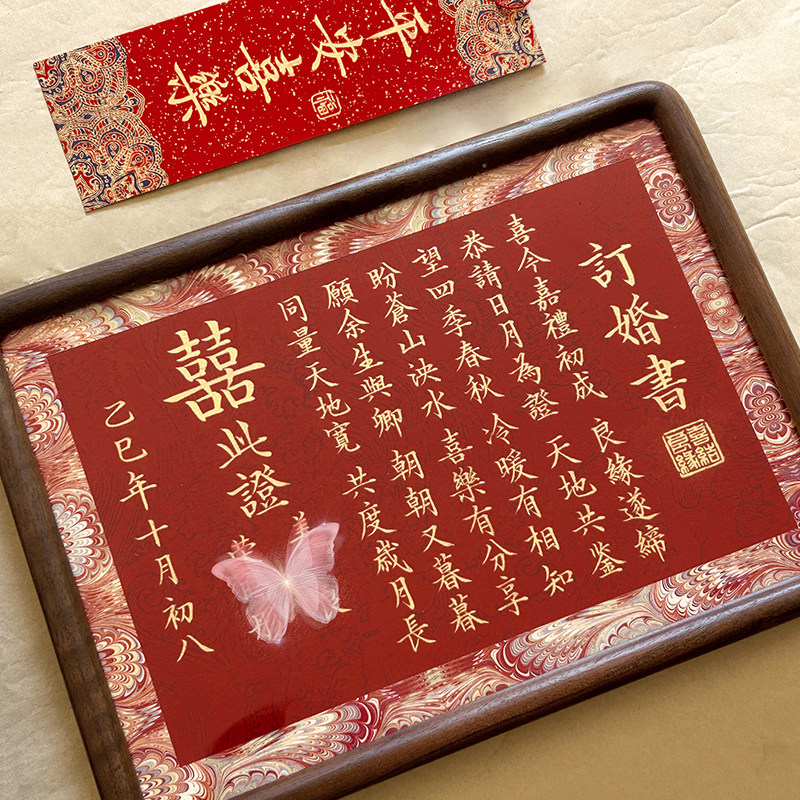 平安喜樂
福
訂婚書
喜結良緣
喜今嘉禮初成 良緣遂締
恭請日月為證 天地共鑒
望四季春秋 冷暖有相知
盼蒼山泱水 喜樂有分享
願余生與卿 朝朝又暮暮
同量天地寬 共度歲月長
囍
此證
乙巳年十月初八